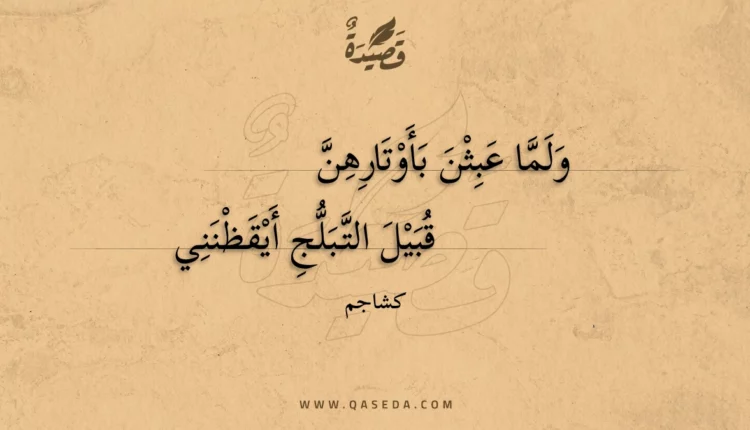 قَصِيدَةٌ
وَلَمَّا عَبِثْنَ بَأَوْتَارِهِنَّ
قُبَيْلَ التَّبَلُّجِ أَيْقَظْنَنِي
كشاجم
WWW.QASEDA.COM